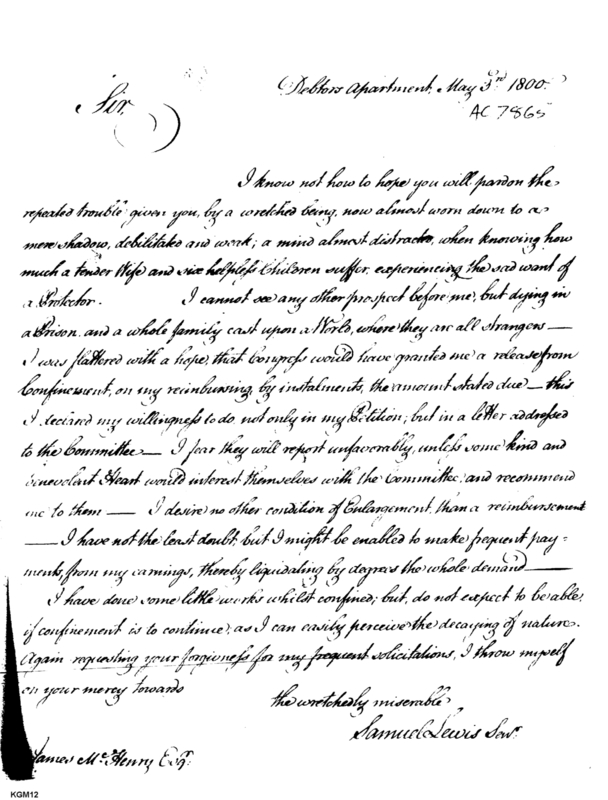 Debtors Apartment, May 3rd 1800.
AC 7865
Sir,
I know not how to hope you will pardon the
repeated trouble given you, by a wretched being, now almost worn down to a
mere shadow, debilitated and weak; a mind almost distracted, when knowing how
much a tender Wife and six helpless Children suffer, experiencing the sad want of
a Protector. I cannot see any other prospect before me, but dying in
a Prison, and a whole family cast upon a World, where they are all strangers —
I was flattered with a hope, that Congress would have granted me a release from
Confinement, on my reimbursing, by instalments, the amount stated due — this
I declared my willingness to do, not only in my Petition; but in a letter addressed
to the Committee — I fear they will report unfavorably, unless some kind and
benevolent Heart would interest themselves with the Committee, and recommend
me to them — I desire no other condition of Enlargement, than a reimbursement
— I have not the least doubt, but I might be enabled to make frequent pay-
ments, from my earnings, thereby liquidating by degrees the whole demand —
I have done some little works whilst confined; but, do not expect to be able,
if confinement is to continue, as I can easily perceive the decaying of nature.
Again requesting your forgiveness for my frequent solicitations, I throw myself
on your mercy towards
the wretchedly miserable
Samuel Lewis Senr.
James McHenry Esqr.
KGM12